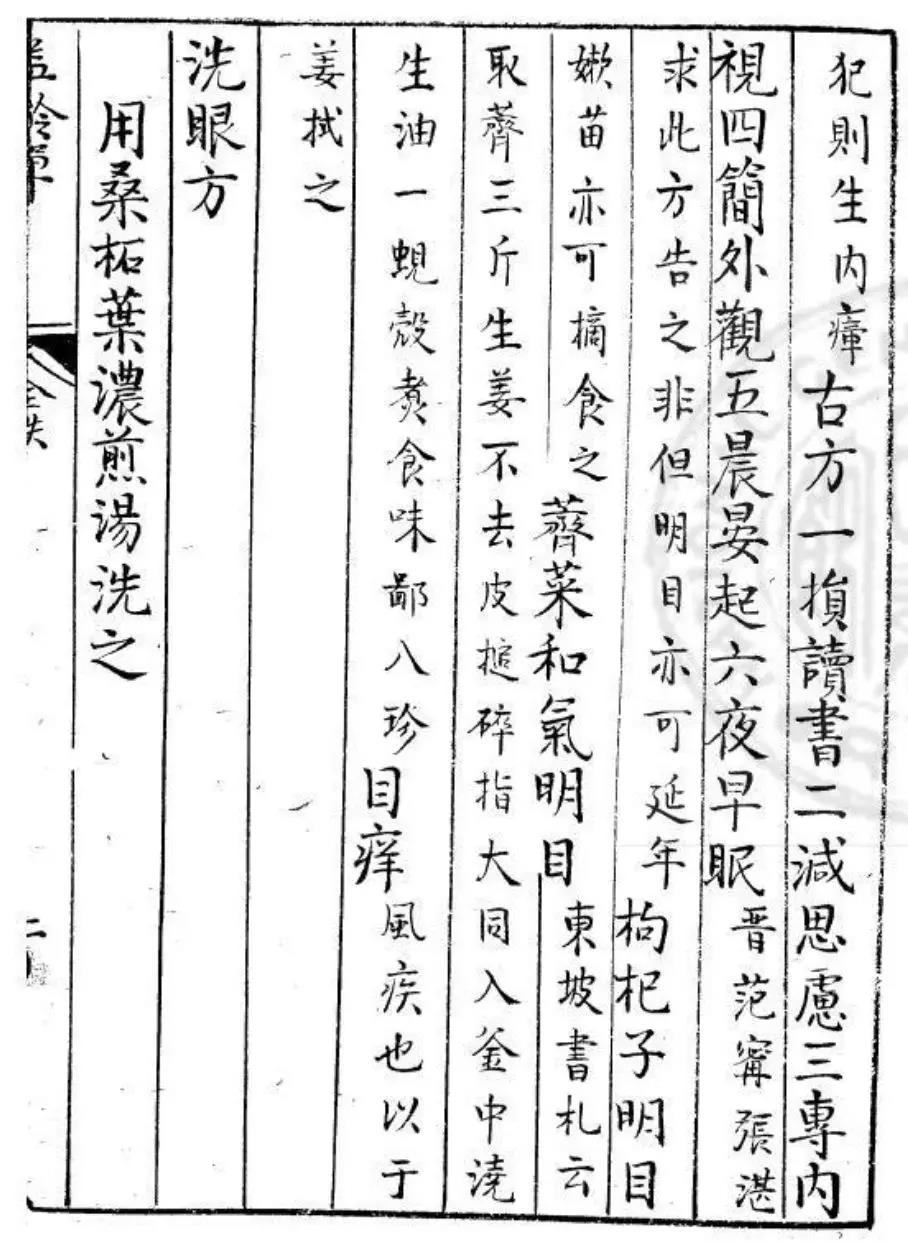 犯則生内瘴古方一損讀書二減思慮三專内
視四簡外觀五晨晏起六夜早眠晋范甯張湛
求此方告之非但明目亦可延年枸杞子明目
嫰苗亦可摘食之薺菜和氣明目東坡書札云
取薺三斤生姜不去皮搥碎指大同入釜中澆
生油一蜆殼煑食味鄙八珍目痒風疾也以于
姜拭之
洗眼方
用桑柘葉濃煎湯洗之
二